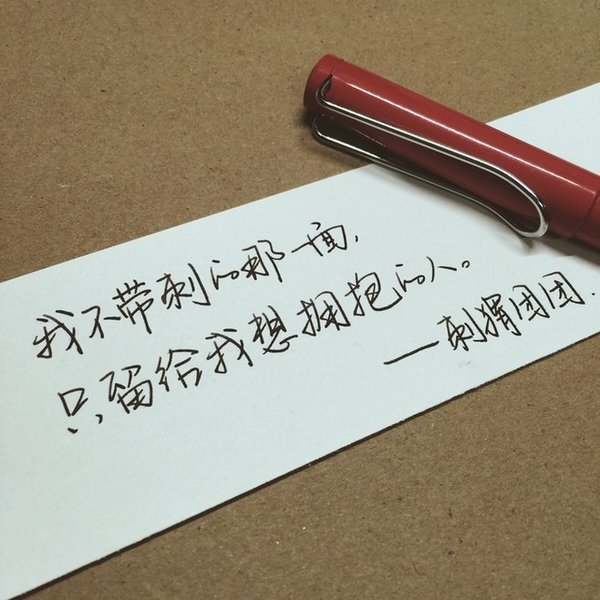 我不带刺的那一面，
只留给我想拥抱的人。
——刺猬团团.